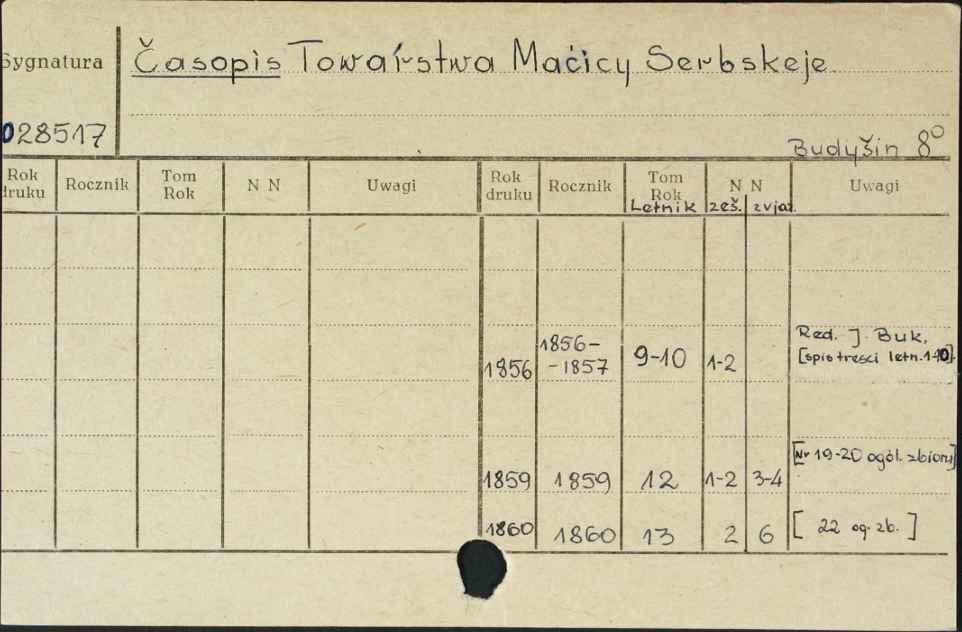 Sygnatura Časopis Towaŕstwa Maćicy Serbskeje
028517
Budyšin 8°
Rok druku Rocznik Tom Rok N N Uwagi Rok druku Rocznik Tom Rok N N Uwagi
Letnik zeš. zvjaz.
1856 1856-
-1857 9-10 1-2 Red. J. Buk.
[spis treści letn. 1-10].
1859 1859 12 1-2 3-4 [Nr 19-20 ogól. zbioru]
1860 1860 13 2 6 [22 og. zb.]